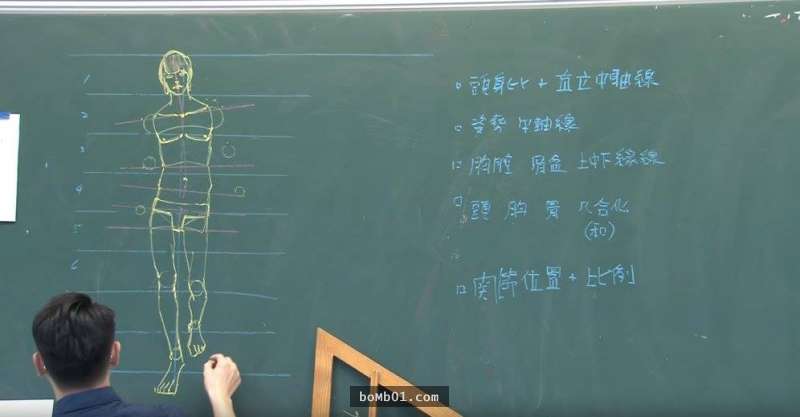 1
2
3
4
5
6
頭身比 + 直立中軸線
姿勢 中軸線
胸腔 骨盆 上中下緣線
頭 胸 骨 合化
(和)
関節位置 + 比例
bomb01.com